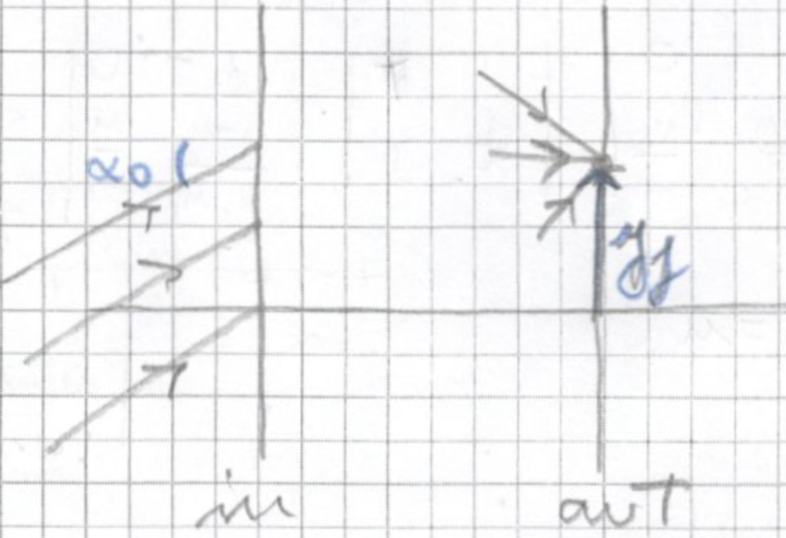 α0
yf
in
out